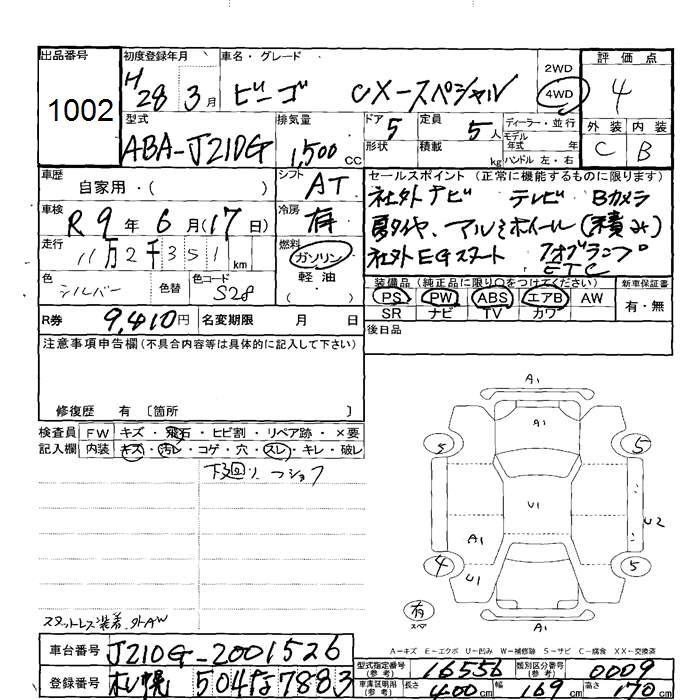 出品番号
1002
初度登録年月
H28 3月
車名・グレード
ビーゴ CX-スペシャル
2WD
4WD
評価点
4
外装 内装
C B
型式
ABA-J210G
排気量
1,500 CC
ドア 5
形状
定員 5人
積載 kg
ディーラー・並行
モデル
年式 年
ハンドル 左・右
車歴
自家用・( )
シフト AT
車検
R9年6月(17日)
冷房 有
走行
11万2千351km
燃料
ガソリン
軽油
( )
色
シルバー
色替
色コード
S28
セールスポイント (正常に機能するものに限ります)
社外ナビ テレビ Bカメラ
夏タイヤ、アルミホイール(積み)
社外EGスタート フォグランプ
ETC
装備品 (純正品に限り○をつけてください)
PS PW ABS エアB AW
SR ナビ TV カワ
新車保証書
有・無
R券 9,410円
名変期限 月 日
後日品
注意事項申告欄 (不具合内容等は具体的に記入して下さい)
修復歴 有 〔箇所 〕
検査員 FW キズ・飛石・ヒビ割・リペア跡・×要
記入欄 内装 キズ・汚レ・コゲ・穴・スレ・キレ・破レ
下廻り
A1
A1
5 5
U1
U2
A1
4 5
U1
有
スペア
A1
スタットレス装着
A-キズ E-エクボ U-凹み W-補修跡 S-サビ C-腐食 XX-交換済
車台番号 J210G-2001526
登録番号 札幌 504 7883
型式指定番号 (参考) 16556
類別区分番号 (参考) 0009
車庫証明用 (参考) 長さ 400cm 幅 169cm 高さ 170cm